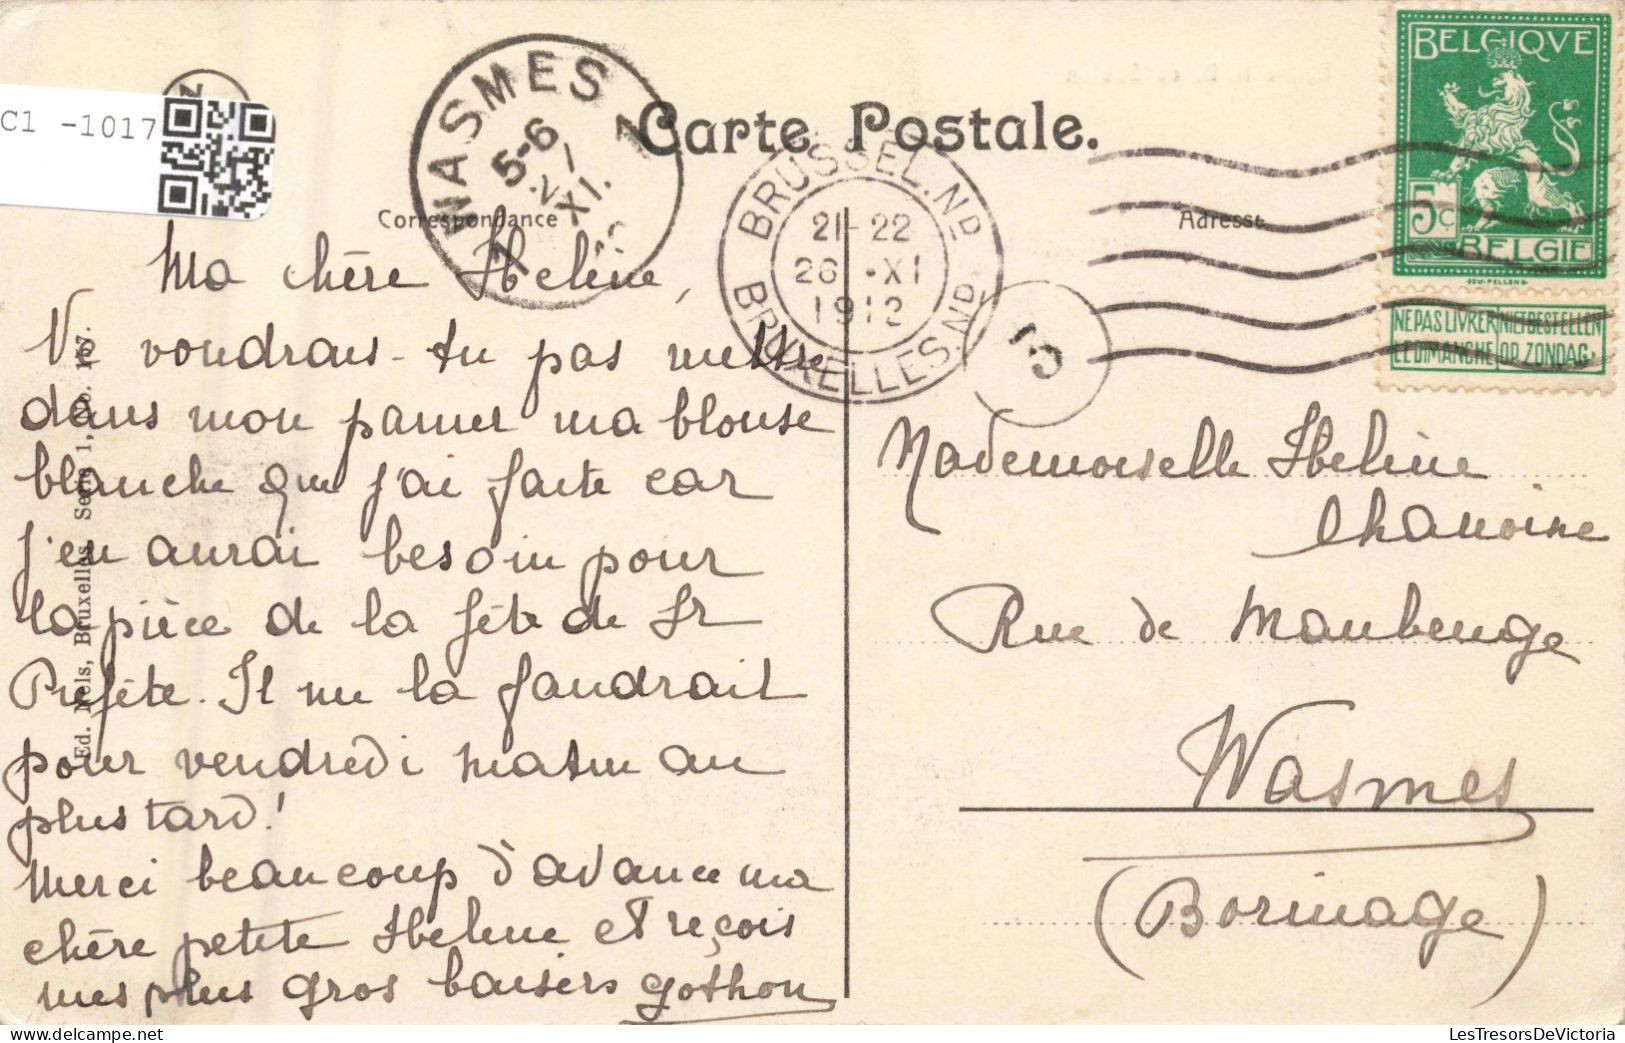 C1 -1017
WASMES
5-6
XI.
Carte Postale.
BRUSSEL. ND
21-22
26 -XI
1912
BRUXELLES ND
BELGIQVE
5c
BELGIE
NE PAS LIVRER NIET BESTELLEN
LE DIMANCHE OP ZONDAG.
5
Correspondance
Adresse
Ma chère Helène,
Ne voudrais-tu pas mettre
dans mon panier ma blouse
blanche que j'ai faite car
j'en aurai besoin pour
la pièce de la fête de Sr
Préfête. Il me la faudrait
pour vendredi matin au
plus tard!
Merci beaucoup d'avance ma
chère petite Helène et reçois
mes plus gros baisers Gothon
Mademoiselle Helène
Chanoine
Rue de Maubeuge
Wasmes
(Borinage)
Ed. Nels, Bruxelles, Serie 1, No. 157.
LesTresorsDeVictoria